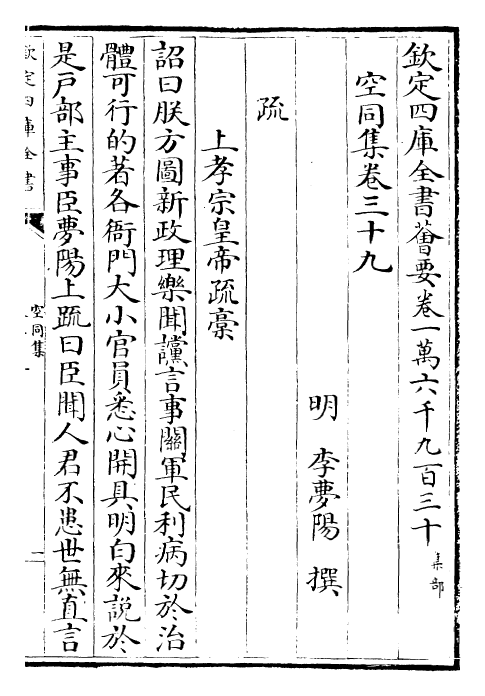 欽定四庫全書薈要卷一萬六千九百三十
集部
空同集卷三十九
明 李夢陽 撰
疏
上孝宗皇帝疏稾
詔曰朕方圖新政理樂聞讜言事關軍民利病切於治
體可行的著各衙門大小官員悉心開具明白來說於
是戶部主事臣夢陽上疏曰臣聞人君不患世無直言
欽定四庫全書
空同集
一